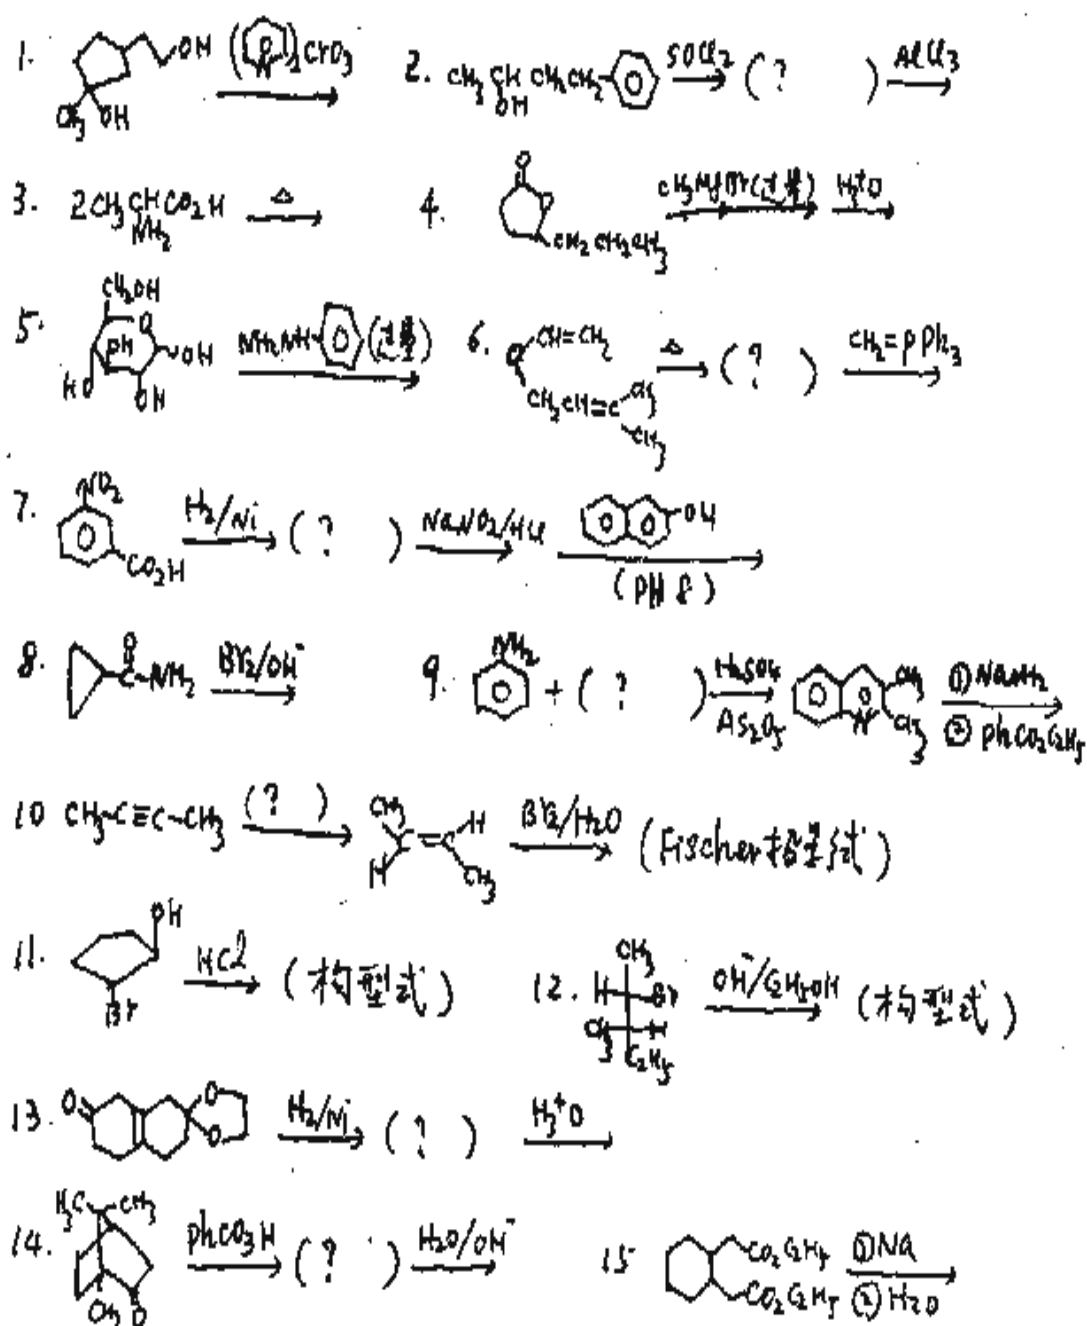 1. OH (N)2CrO3 CH3 OH 2. CH3CHCH2CH2 OH SOCl2 ( ? ) AlCl3
3. 2CH3CHCO2H NH2 △ 4. O O CH2CH2CH3 CH3MgBr(过量) H3+O
5. CH2OH O OH HO OH NH2NH (过量) 6. O CH=CH2 CH2CH=C CH3 CH3 △ ( ? ) CH2=PPh3
7. NO2 CO2H H2/Ni ( ? ) NaNO2/HCl OH (PH 8)
8. O C-NH2 Br2/OH- 9. NH2 + ( ? ) H2SO4 As2O5 N CH3 CH3 ① NaNH2 ② PhCO2C2H5
10 CH3-C≡C-CH3 ( ? ) CH3 H H CH3 Br2/H2O (Fischer构型式)
11. OH Br HCl (构型式) 12. CH3 H Br CH3 H C2H5 OH-/C2H5OH (构型式)
13. O O O H2/Ni ( ? ) H3+O
14. H3C CH3 CH3 O PhCO3H ( ? ) H2O/OH- 15 CO2C2H5 CO2C2H5 ① Na ② H2O